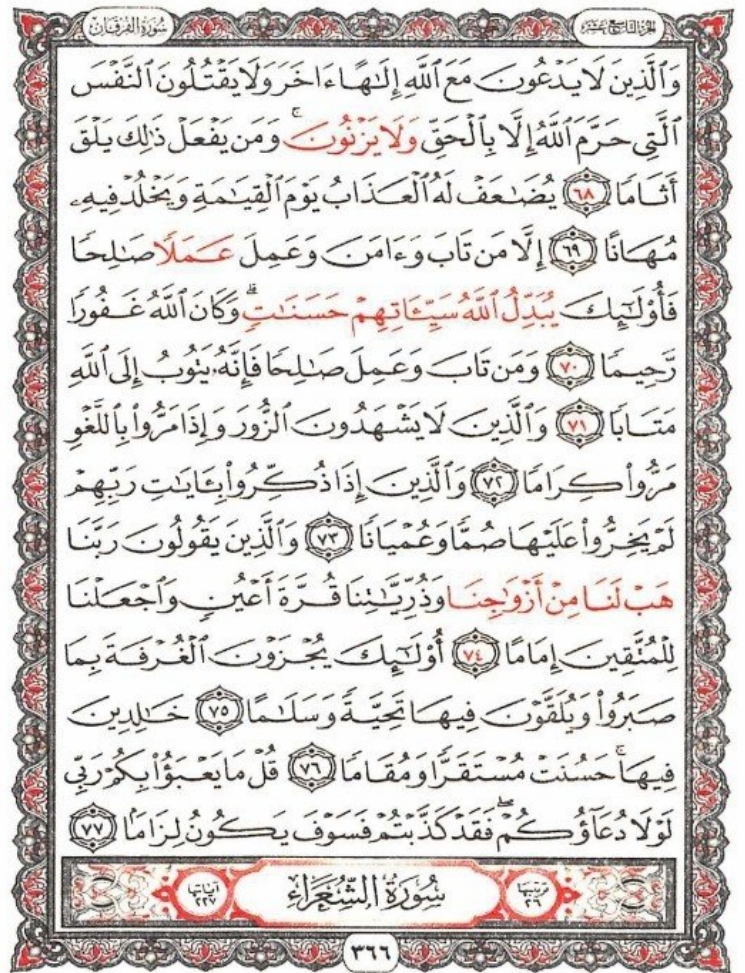 سُورَةُ الفُرْقَان الجُزْءُ التَّاسِعُ عَشَرَ
وَٱلَّذِينَ لَا يَدْعُونَ مَعَ ٱللَّهِ إِلَٰهًا ءَاخَرَ وَلَا يَقْتُلُونَ ٱلنَّفْسَ
ٱلَّتِي حَرَّمَ ٱللَّهُ إِلَّا بِٱلْحَقِّ وَلَا يَزْنُونَ ۚ وَمَن يَفْعَلْ ذَٰلِكَ يَلْقَ
أَثَامًا ٦٨ يُضَٰعَفْ لَهُ ٱلْعَذَابُ يَوْمَ ٱلْقِيَٰمَةِ وَيَخْلُدْ فِيهِۦ
مُهَانًا ٦٩ إِلَّا مَن تَابَ وَءَامَنَ وَعَمِلَ عَمَلًا صَٰلِحًا
فَأُو۟لَٰٓئِكَ يُبَدِّلُ ٱللَّهُ سَيِّـَٔاتِهِمْ حَسَنَٰتٍ ۗ وَكَانَ ٱللَّهُ غَفُورًا
رَّحِيمًا ٧٠ وَمَن تَابَ وَعَمِلَ صَٰلِحًا فَإِنَّهُۥ يَتُوبُ إِلَى ٱللَّهِ
مَتَابًا ٧١ وَٱلَّذِينَ لَا يَشْهَدُونَ ٱلزُّورَ وَإِذَا مَرُّوا۟ بِٱللَّغْوِ
مَرُّوا۟ كِرَامًا ٧٢ وَٱلَّذِينَ إِذَا ذُكِّرُوا۟ بِـَٔايَٰتِ رَبِّهِمْ
لَمْ يَخِرُّوا۟ عَلَيْهَا صُمًّا وَعُمْيَانًا ٧٣ وَٱلَّذِينَ يَقُولُونَ رَبَّنَا
هَبْ لَنَا مِنْ أَزْوَٰجِنَا وَذُرِّيَّٰتِنَا قُرَّةَ أَعْيُنٍ وَٱجْعَلْنَا
لِلْمُتَّقِينَ إِمَامًا ٧٤ أُو۟لَٰٓئِكَ يُجْزَوْنَ ٱلْغُرْفَةَ بِمَا
صَبَرُوا۟ وَيُلَقَّوْنَ فِيهَا تَحِيَّةً وَسَلَٰمًا ٧٥ خَٰلِدِينَ
فِيهَا ۚ حَسُنَتْ مُسْتَقَرًّا وَمُقَامًا ٧٦ قُلْ مَا يَعْبَؤُا۟ بِكُمْ رَبِّي
لَوْلَا دُعَآؤُكُمْ ۖ فَقَدْ كَذَّبْتُمْ فَسَوْفَ يَكُونُ لِزَامًا ٧٧
ترتيبها ٢٦ سُورَةُ الشُّعَرَاءِ آياتها ٢٢٧
٣٦٦